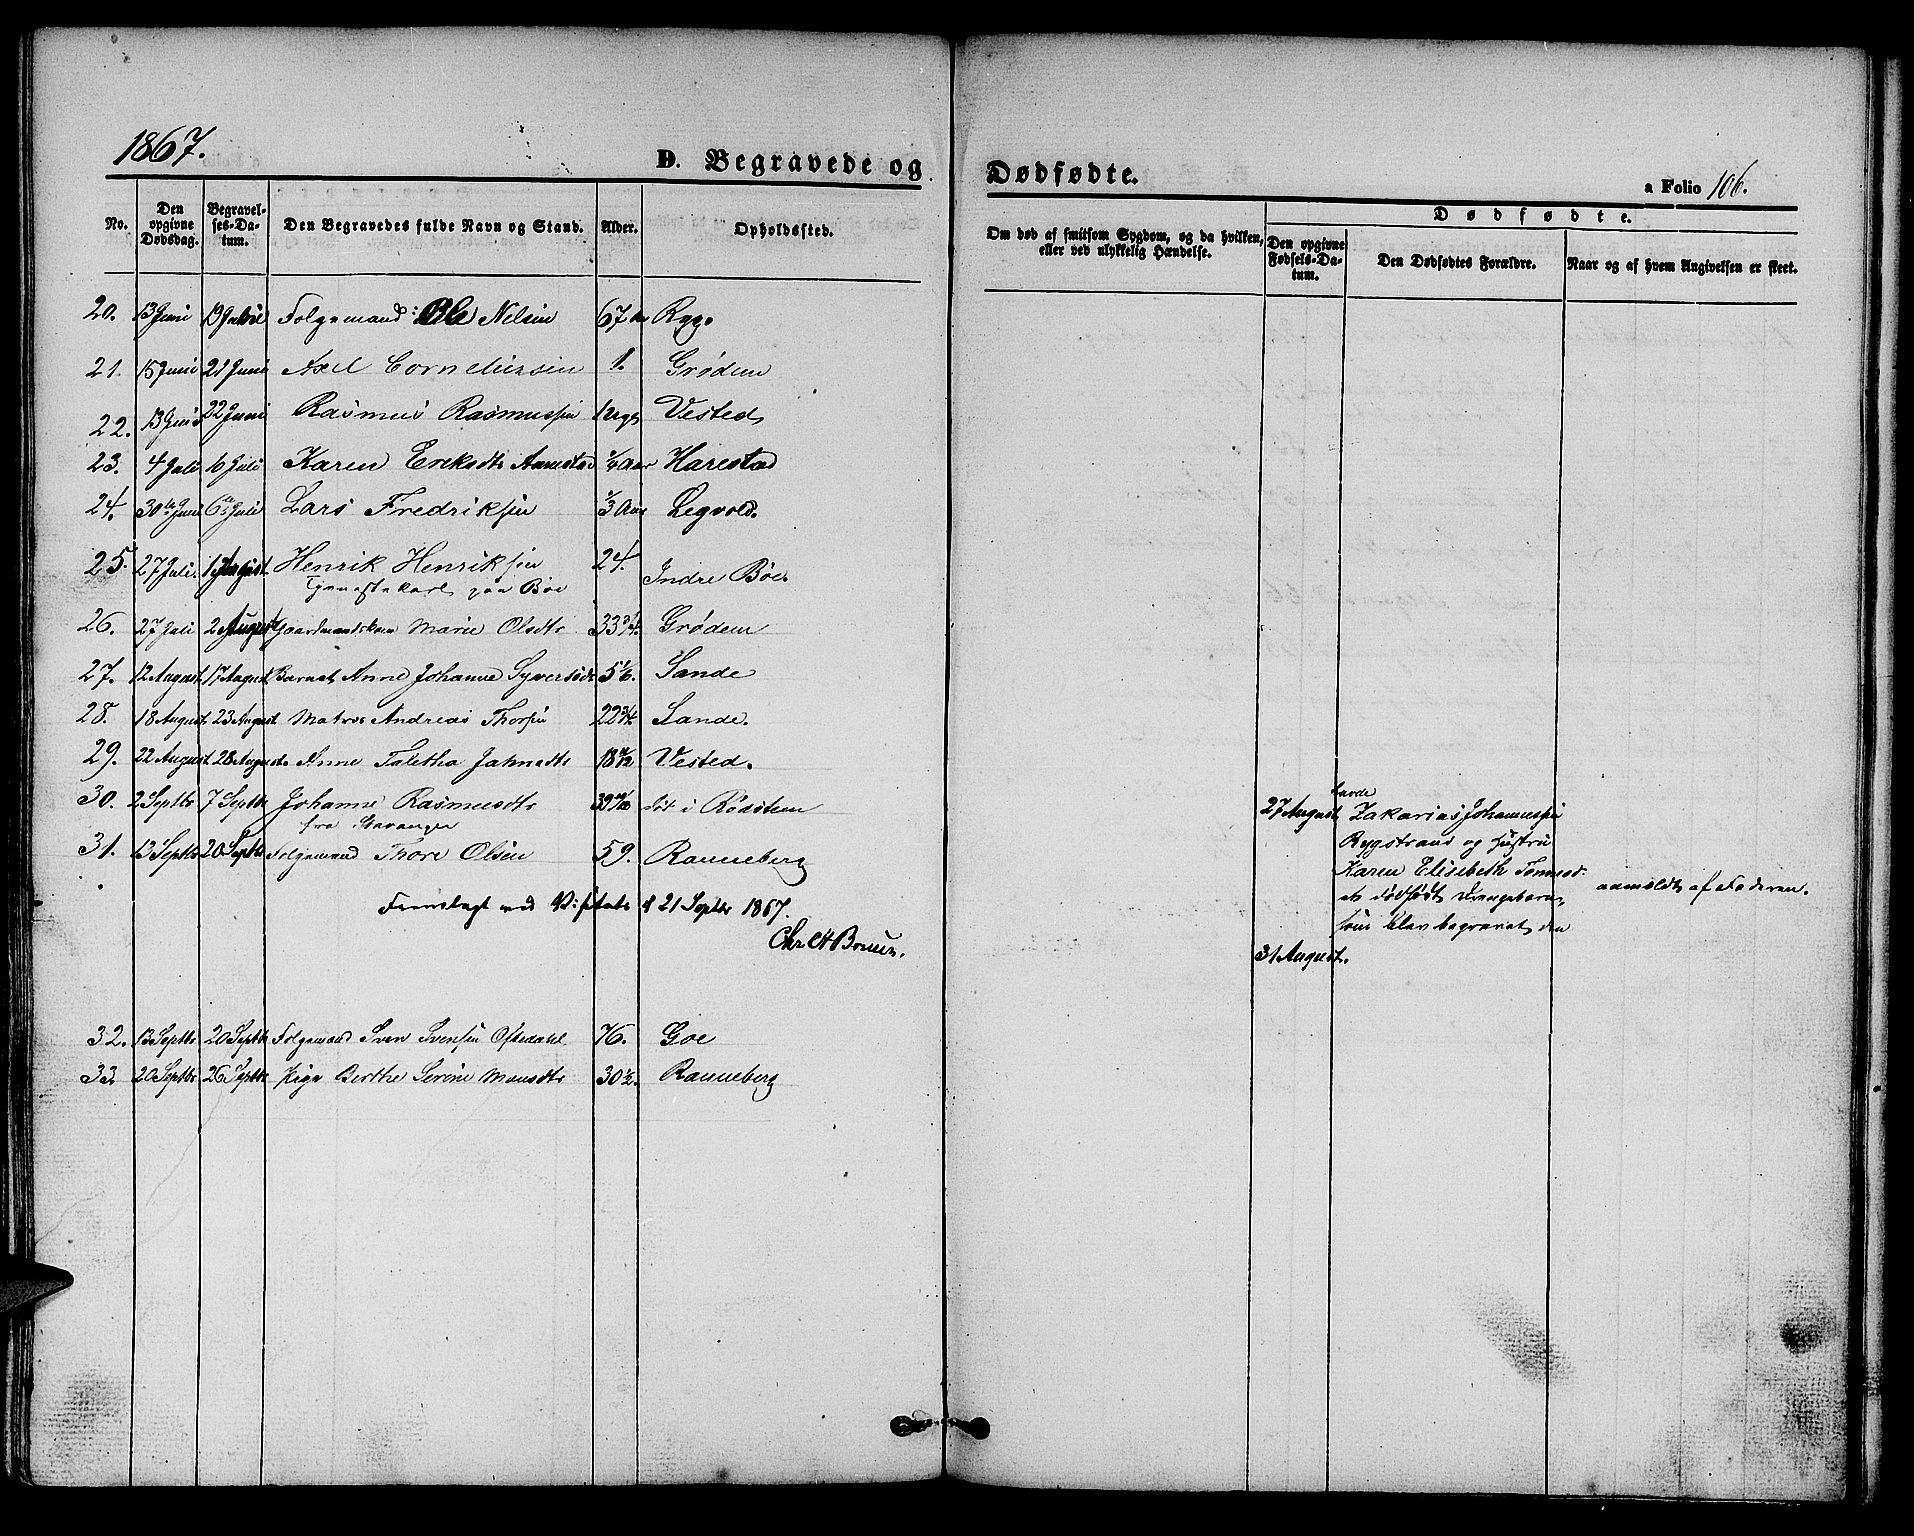 1867.
D. Begravede og
No.
Den opgivne Dødsdag.
Begravelses-Datum.
Den Begravedes fulde Navn og Stand.
Alder.
Opholdssted.
20. 13 Juni 19 Folgemand: Ole Nilsen 67 Ryg.
21. 15 Juni 21 Juni Axel Corneliussen 1. Grødem
22. 13 Juni 22 Juni Rasmus Rasmussen Vested
23. 4 Juli 6 Juli Karen Eriksdtr Harestad
24. 30te Juni 6te Juli Lars Fredriksen 1/3 Aar Legvold.
25. 27 Juli. 1 August. Henrik Henriksen 24. Indre Bøe.
Tjenestekarl paa Bøe
26. 27 Juli 2 August Gaardmandskone Marie Olsdtr 33 3/4. Grødem
27. 12 August 17 August Barnet Anne Johanne Syversdtr 5 1/6. Sande
28. 18 August 23 August Matros Andreas Thorsen 22 3/4. Sande.
29. 22 August 28 August. Anne Taletha Jahnsdtr 18 Vested.
30. 2 Septbr 7 Septbr Johanne Rasmusdtr 39 i Rødsteen
fra Stavanger
31. 13 Septbr 20 Septbr Folgemand Thore Olsen 59. Ranneberg
Fremlagt ved Visitats d 21 Septbr 1867.
32. 13 Septbr 20 Septbr Folgemand Sven Svensen Oftedahl 76. Goe
33. 20 Septbr 26 Septbr Pige Berthe Serine Monsdtr 30 1/2. Ranneberg
Dødfødte.
a Folio 106.
Om død af smitsom Sygdom, og da hvilken, eller ved ulykkelig Hændelse.
Dødfødte.
Den opgivne Fødsels-Datum.
Den Dødfødtes Forældre.
Naar og af hvem Angivelsen er skeet.
27 August Zakarias Johannessen
Rygstrand og Hustru
Karen Elisabeth Tønnesd.
et dødfødt Drengebarn, anmeldt af Faderen.
som blev begravet den
31 August.